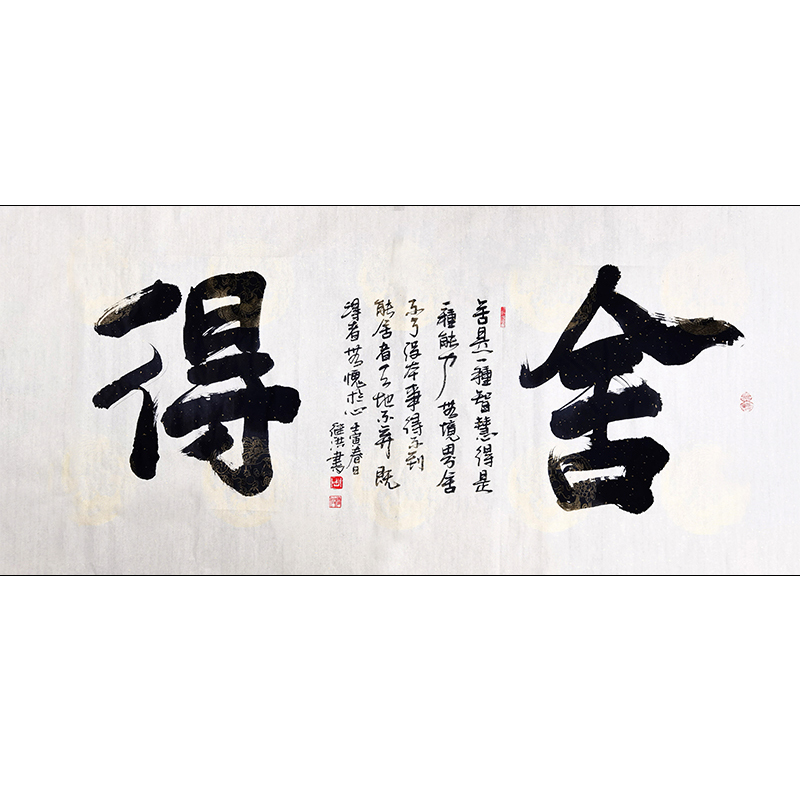 舍
舍是一種智慧得是
一種能力無境界舍
不了沒本事得不到
能舍者天地不弃既
得者無愧於心壬寅春日
書
得